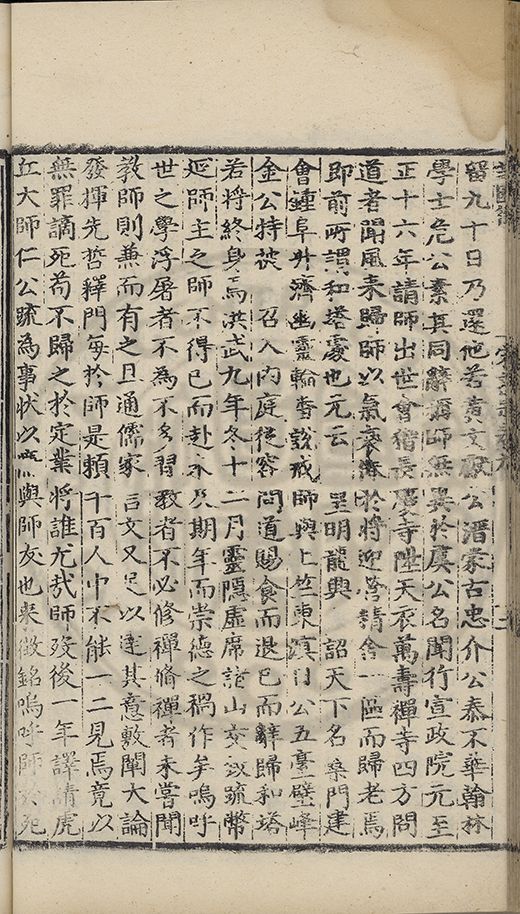 留九十日乃還他若黃文獻公溍蒙古忠介公泰不華翰林
學士危公素其同辭稱師無異於虞公名聞行宣政院元至
正十六年請師出世會稽長慶寺陞天衣萬壽禪寺四方問
道者聞風來歸師以氣衰於將迎營精舍一區而歸老焉
即前所謂和塔處也元云 皇明龍興 詔天下名桑門建
會鍾阜升濟幽靈輪番說戒師與上竺東溟日公五臺璧峰
金公特被 召入內庭從容問道賜食而退已而辭歸和塔
若將終身焉洪武九年冬十二月靈隱虛席諸山交致疏幣
延師主之師不得已而赴永及期年而崇德之禍作矣嗚呼
世之學浮屠者不為不多習教者不必修禪脩禪者未嘗聞
教師則兼而有之且通儒家言文又足以達其意敷闡大論
發揮先哲釋門每於師是賴千百人中不能一二見焉竟以
無罪謫死苟不歸之於定業將誰尤哉師歿後一年譯請虎
丘大師仁公疏為事狀以 與師友也來徵銘嗚呼師於死